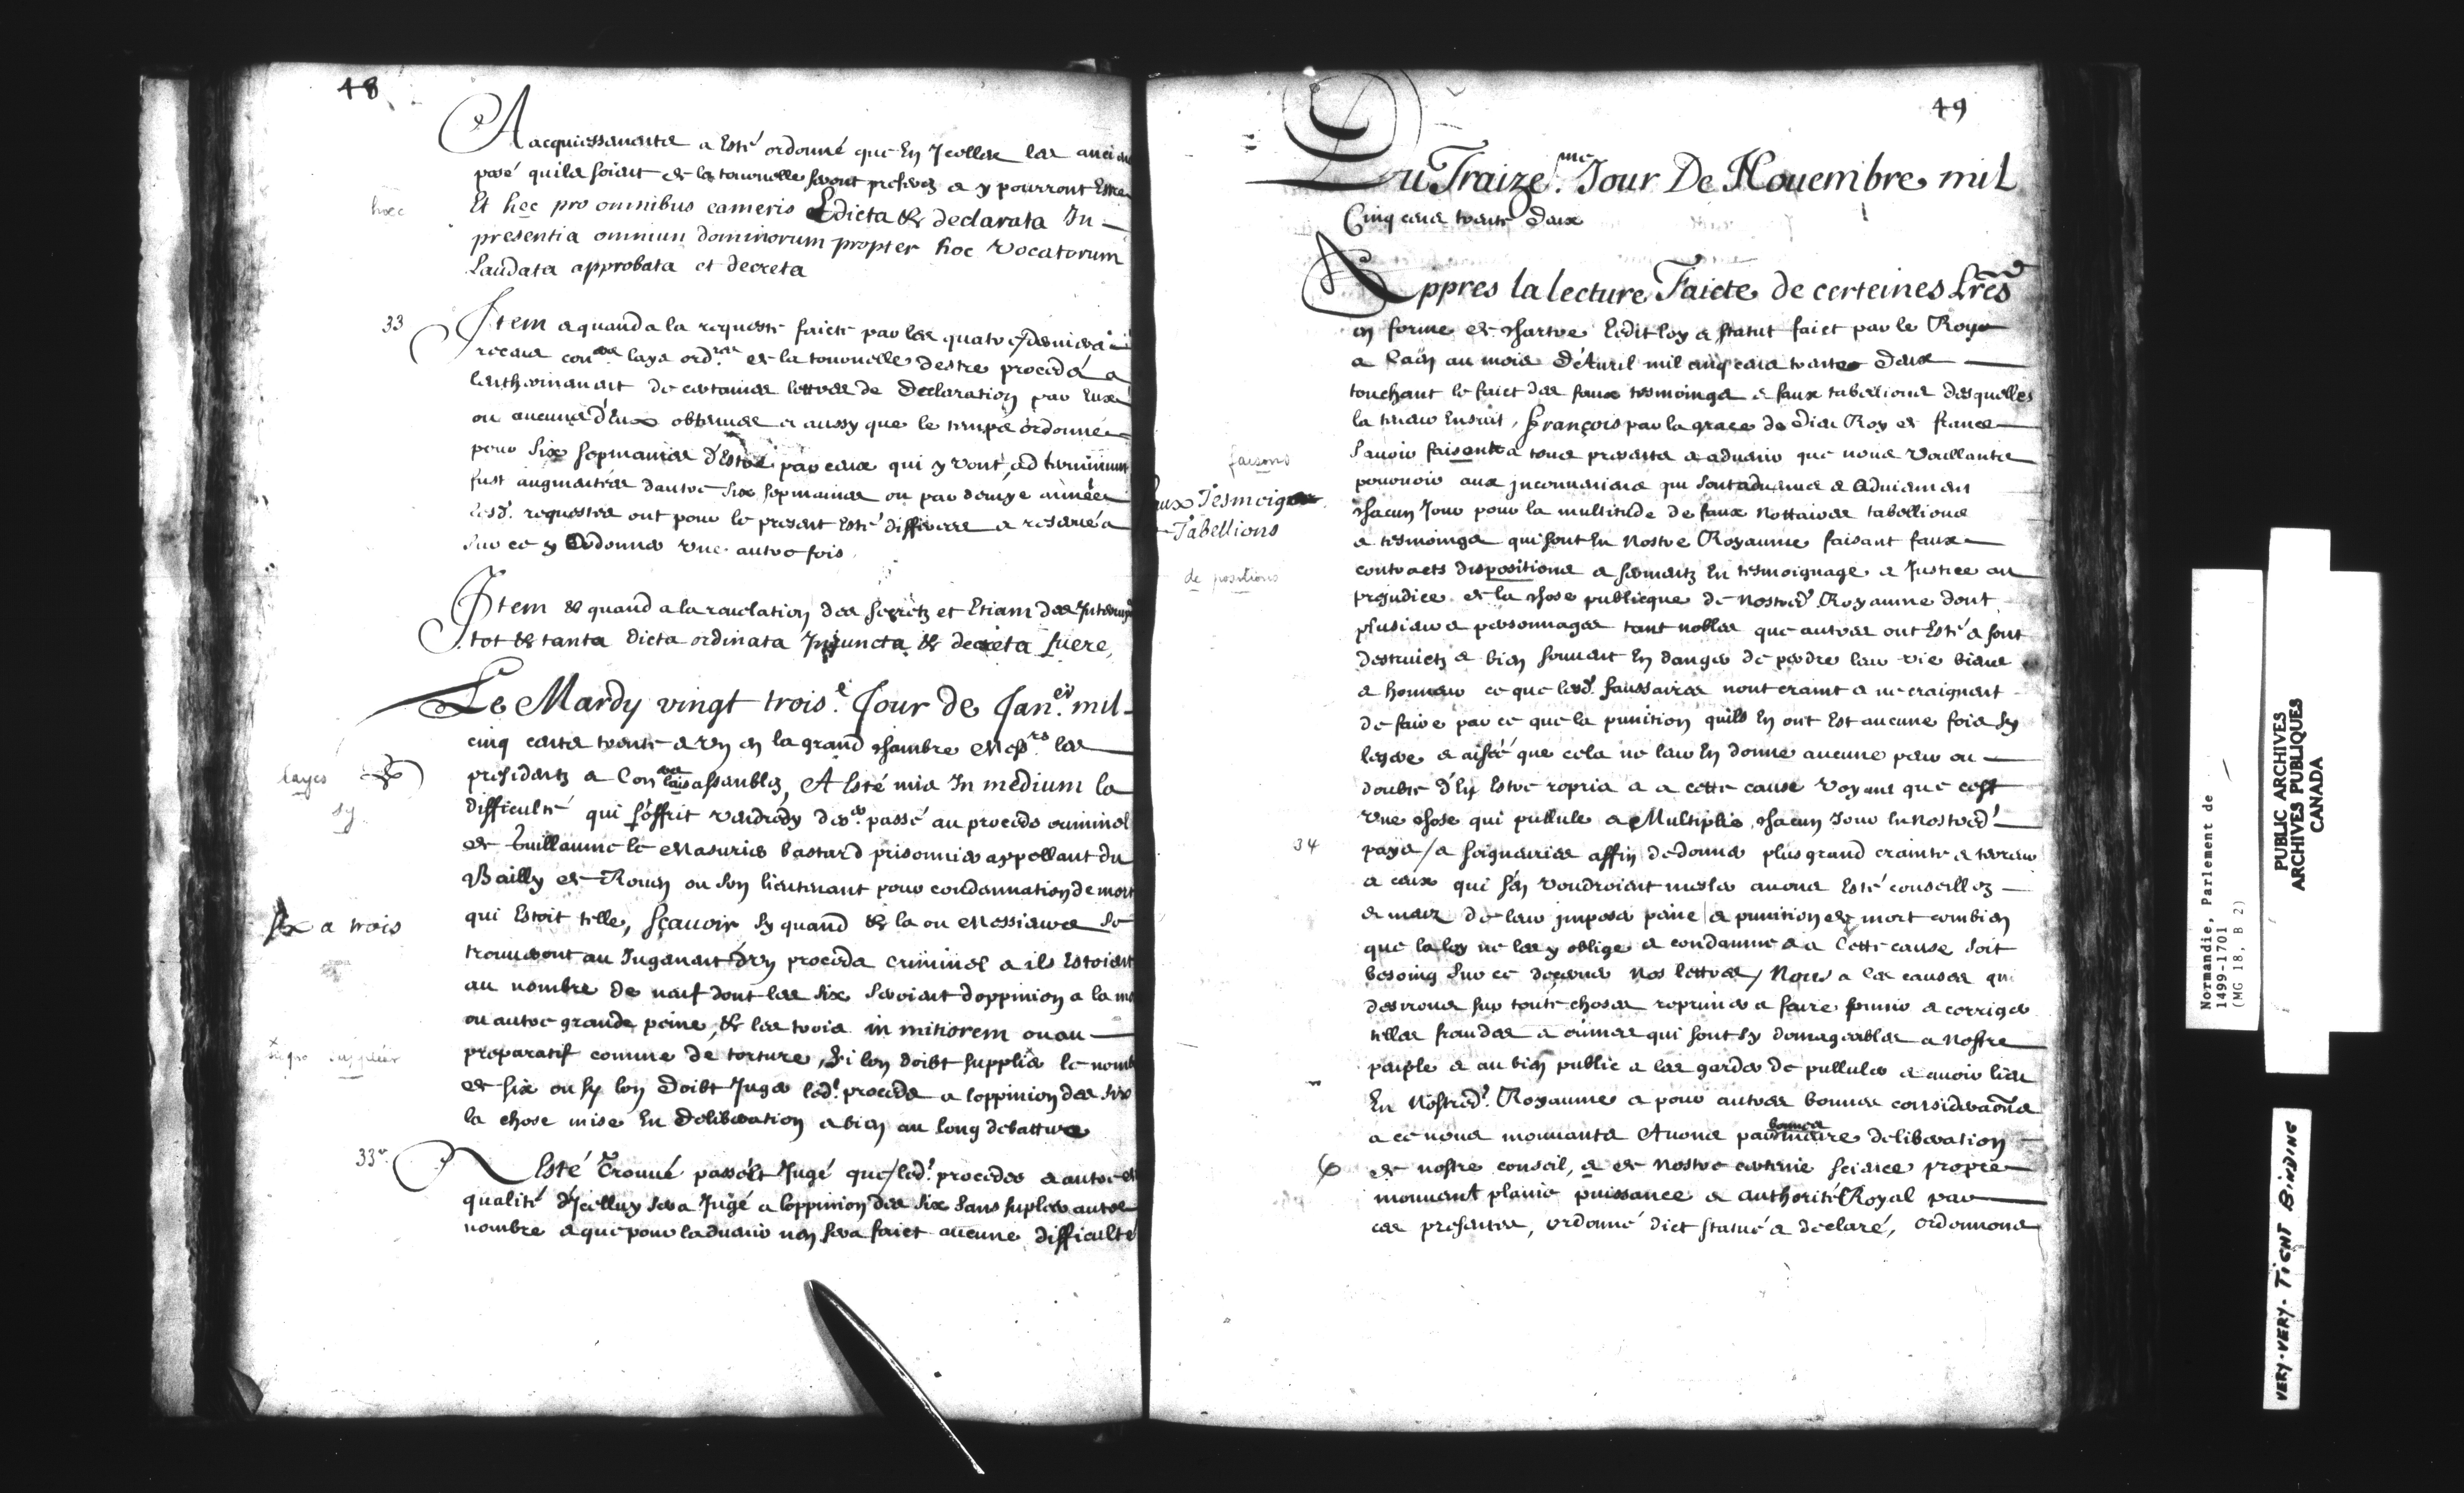 48
A acquiessement a Esté ordonné que En Jcelles les ancien
pasé quilz soient de la tournelle seront preferez & y pourront Estre
hæc
Et hęc pro omnibus cameris Edicta & declarata In
presentia omnium dominorum propter hoc vocatorum
Laudata approbata et decreta
33
Item & quand a la requeste faicte par les quatre derniers
receus con.ers lays ord.res de la tournelle destre procedé a
lentherinement de certaines lettres de Declaration par Eux
ou aucuns d'Eux obtenues & aussy que le temps ordonné
pour Six sepmaines d'Estre par ceux qui y vont, ad turnum
fust augmentées dautre Six sepmaines ou par demye année
lesd. requestes ont pour le present Esté differees & reservé a
Sur ce y Ordonner une autre fois
Item & quand a la revelation des secretz et Etiam des
tot & tanta dicta ordinata Injuncta & decreta fuere,
Le Mardy vingt trois.e Jour de Jan.er mil
cinq cents trente & un en la grand chambre Mess.rs les
layes
presidentz & Con.ers lais assemblez, A Esté mis In medium la
sy
difficulté qui s'offrit vendredy der.er passé au proceds criminel
de Guillaume le Masurier bastard prisonnier appellant du
Bailly de Rouen ou son lieutenant pour condamnation de mort
six a trois
qui Estoit telle, sçavoir sy quand & la ou Messieurs se
trouveront au Jugement d'un proceds criminel & ils Estoient
au nombre de neuf dont les six seroient doppinion a la
ou autre grande peine, & les trois in mitiorem ou au
supplier
preparatif comme de torture, Si lon doibt supplier le nomb
de six ou sy lon doibt Juger led. proceds a loppinion des six
la chose mise En deliberation & bien au long debattue
33v.
A Esté Trouvé passé & Jugé que led. proceds & autre de
qualité d'Jcelluy sera Jugé a loppinion des six sans supleer autre
nombre & que pour ladvenir nen sera faict aucune difficulté
49
Du Traize.me Jour De Novembre mil
Cinq cens trente Deux
Appres la lecture Faicte de certeines Lres
en forme de chartre Ledit loy & statut faict par le Roy
a Caen au mois d'Avril mil cinq cens trente Deux
touchant le faict des faux tesmoings & faux tabellions desquelles
la teneur Ensuit, François par la grace de Dieu Roy de france
faisons
Savoir faisent a tous presents & advenir que nous Voullants
faux Tesmoigns
pourvoir aux Jnconveniens qui sont advenus & Adviennent
chacun Jour pour la multitude de faux Nottaires tabellions
& Tabellions
& tesmoings qui sont En Nostre Royaume faisant faux
de positions
contracts dispositions & sermentz En tesmoignage & Justice au
prejudice de la chose publicque de Nostred. Royaume dont
plusieurs personnages tant nobles que autres ont Esté & sont
destruictz & bien souvent En danger de perdre leur vie biens
& honneur ce que lesd. faussaires nont craint & ne craignent
de faire par ce que la punition quilz En ont Est aucune fois sy
legere & aisée que cela ne leur En donne aucune peur ou
doubte d'En Estre repris & a cette cause Voyant que cest
Une chose qui pullule & Multiplie chacun Jour En Nostred.
34
pays & seigneuries affin de donner plus grand crainte & terreur
a ceux qui sen voudroient mesler avons Esté conseillez
& meuz de leur Jmposer peine & punition de mort combien
que la loy ne les y oblige & condamne & a Cette cause soit
besoing Sur ce decerner Nos lettres, Nous a les causes qui
desirons sur toute choses reprimer & faire punir & corriger
telles fraudes & crimes qui sont sy domageables a Nostre
peuple & au bien public & les garder de pulluler & avoir lieu
En Nostred. Royaume & pour autres bonnes consideraons
a ce nous mouvants Avons par bonne meure deliberation
de nostre conseil, & de Nostre certaine science propre
mouvant plaine puissance & authorité Royal par
ces presentes, ordonné dict statué & declaré, ordonnons
Normandie, Parlement de
1499-1701
(MG 18, B 2)
PUBLIC ARCHIVES
ARCHIVES PUBLIQUES
CANADA
VERY-VERY-TIGHT BINDING